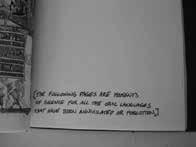 [THE FOLLOWING PAGES ARE MOMENTS
OF SILENCE FOR ALL THE ORAL LANGUAGES
THAT HAVE BEEN ANNIHILATED OR FORGOTTEN.]